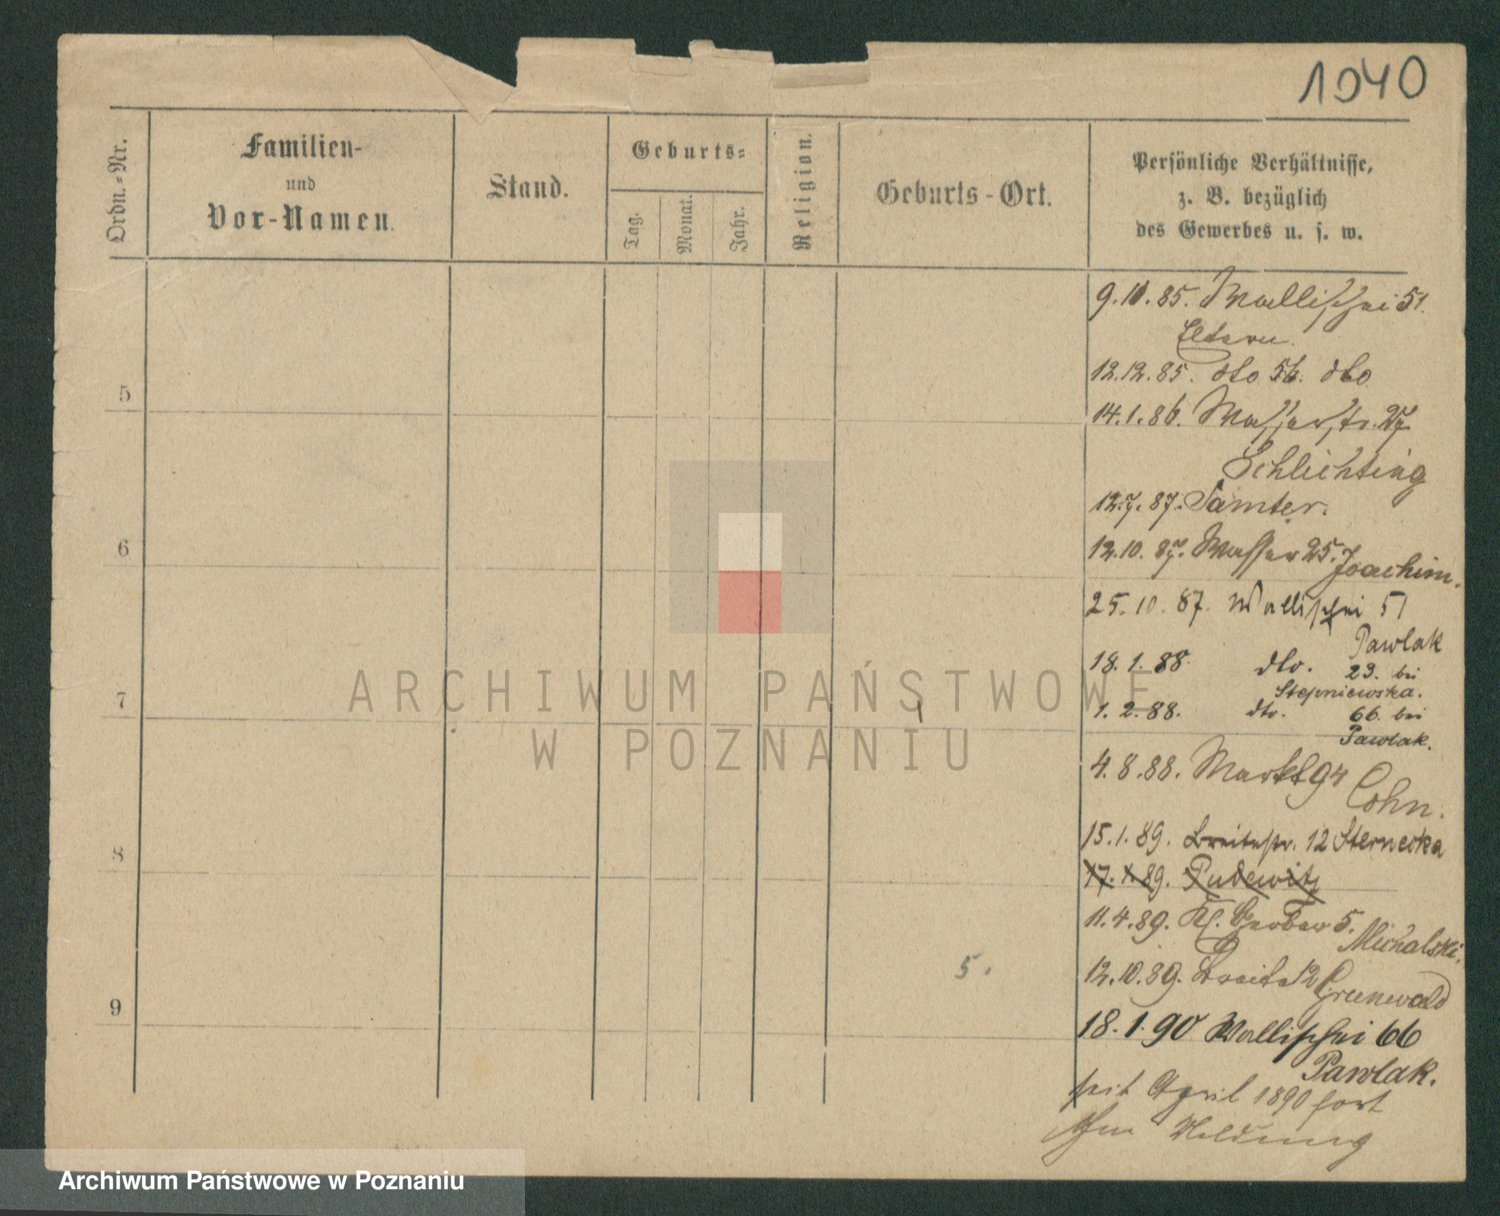 1040
Ordn.-Nr.
Familien-
und
Vor-Namen.
Stand.
Geburts-
Tag.
Monat.
Jahr.
Religion.
Geburts-Ort.
Persönliche Verhältnisse,
z. B. bezüglich
des Gewerbes u. s. w.
9.10.85. Wallischei 51.
Eltern.
12.12.85. dto 5b. dto
5
14.1.86. Wasserstr. 27.
Schlichting
12.7.87. Samter.
6
12.10.87. Wasser 25. Joachim.
25.10.87. Wallischei 51
Pawlak
18.1.88. dto. 23. bei
Stepniewska.
7
1.2.88. dto. 66. bei
Pawlak.
4.8.88. Markt 94
Cohn.
15.1.89. Breitestr. 12 Sternecka
8
17.1.89. Pudewitz
11.4.89. Kl. Gerber 5.
Michalski.
5.
12.10.89. Breite 12 Grunwald
9
18.1.90 Wallischei 66
Pawlak.
seit April 1890 fort
ohne Meldung
ARCHIWUM PAŃSTWOWE
W POZNANIU
Archiwum Państwowe w Poznaniu